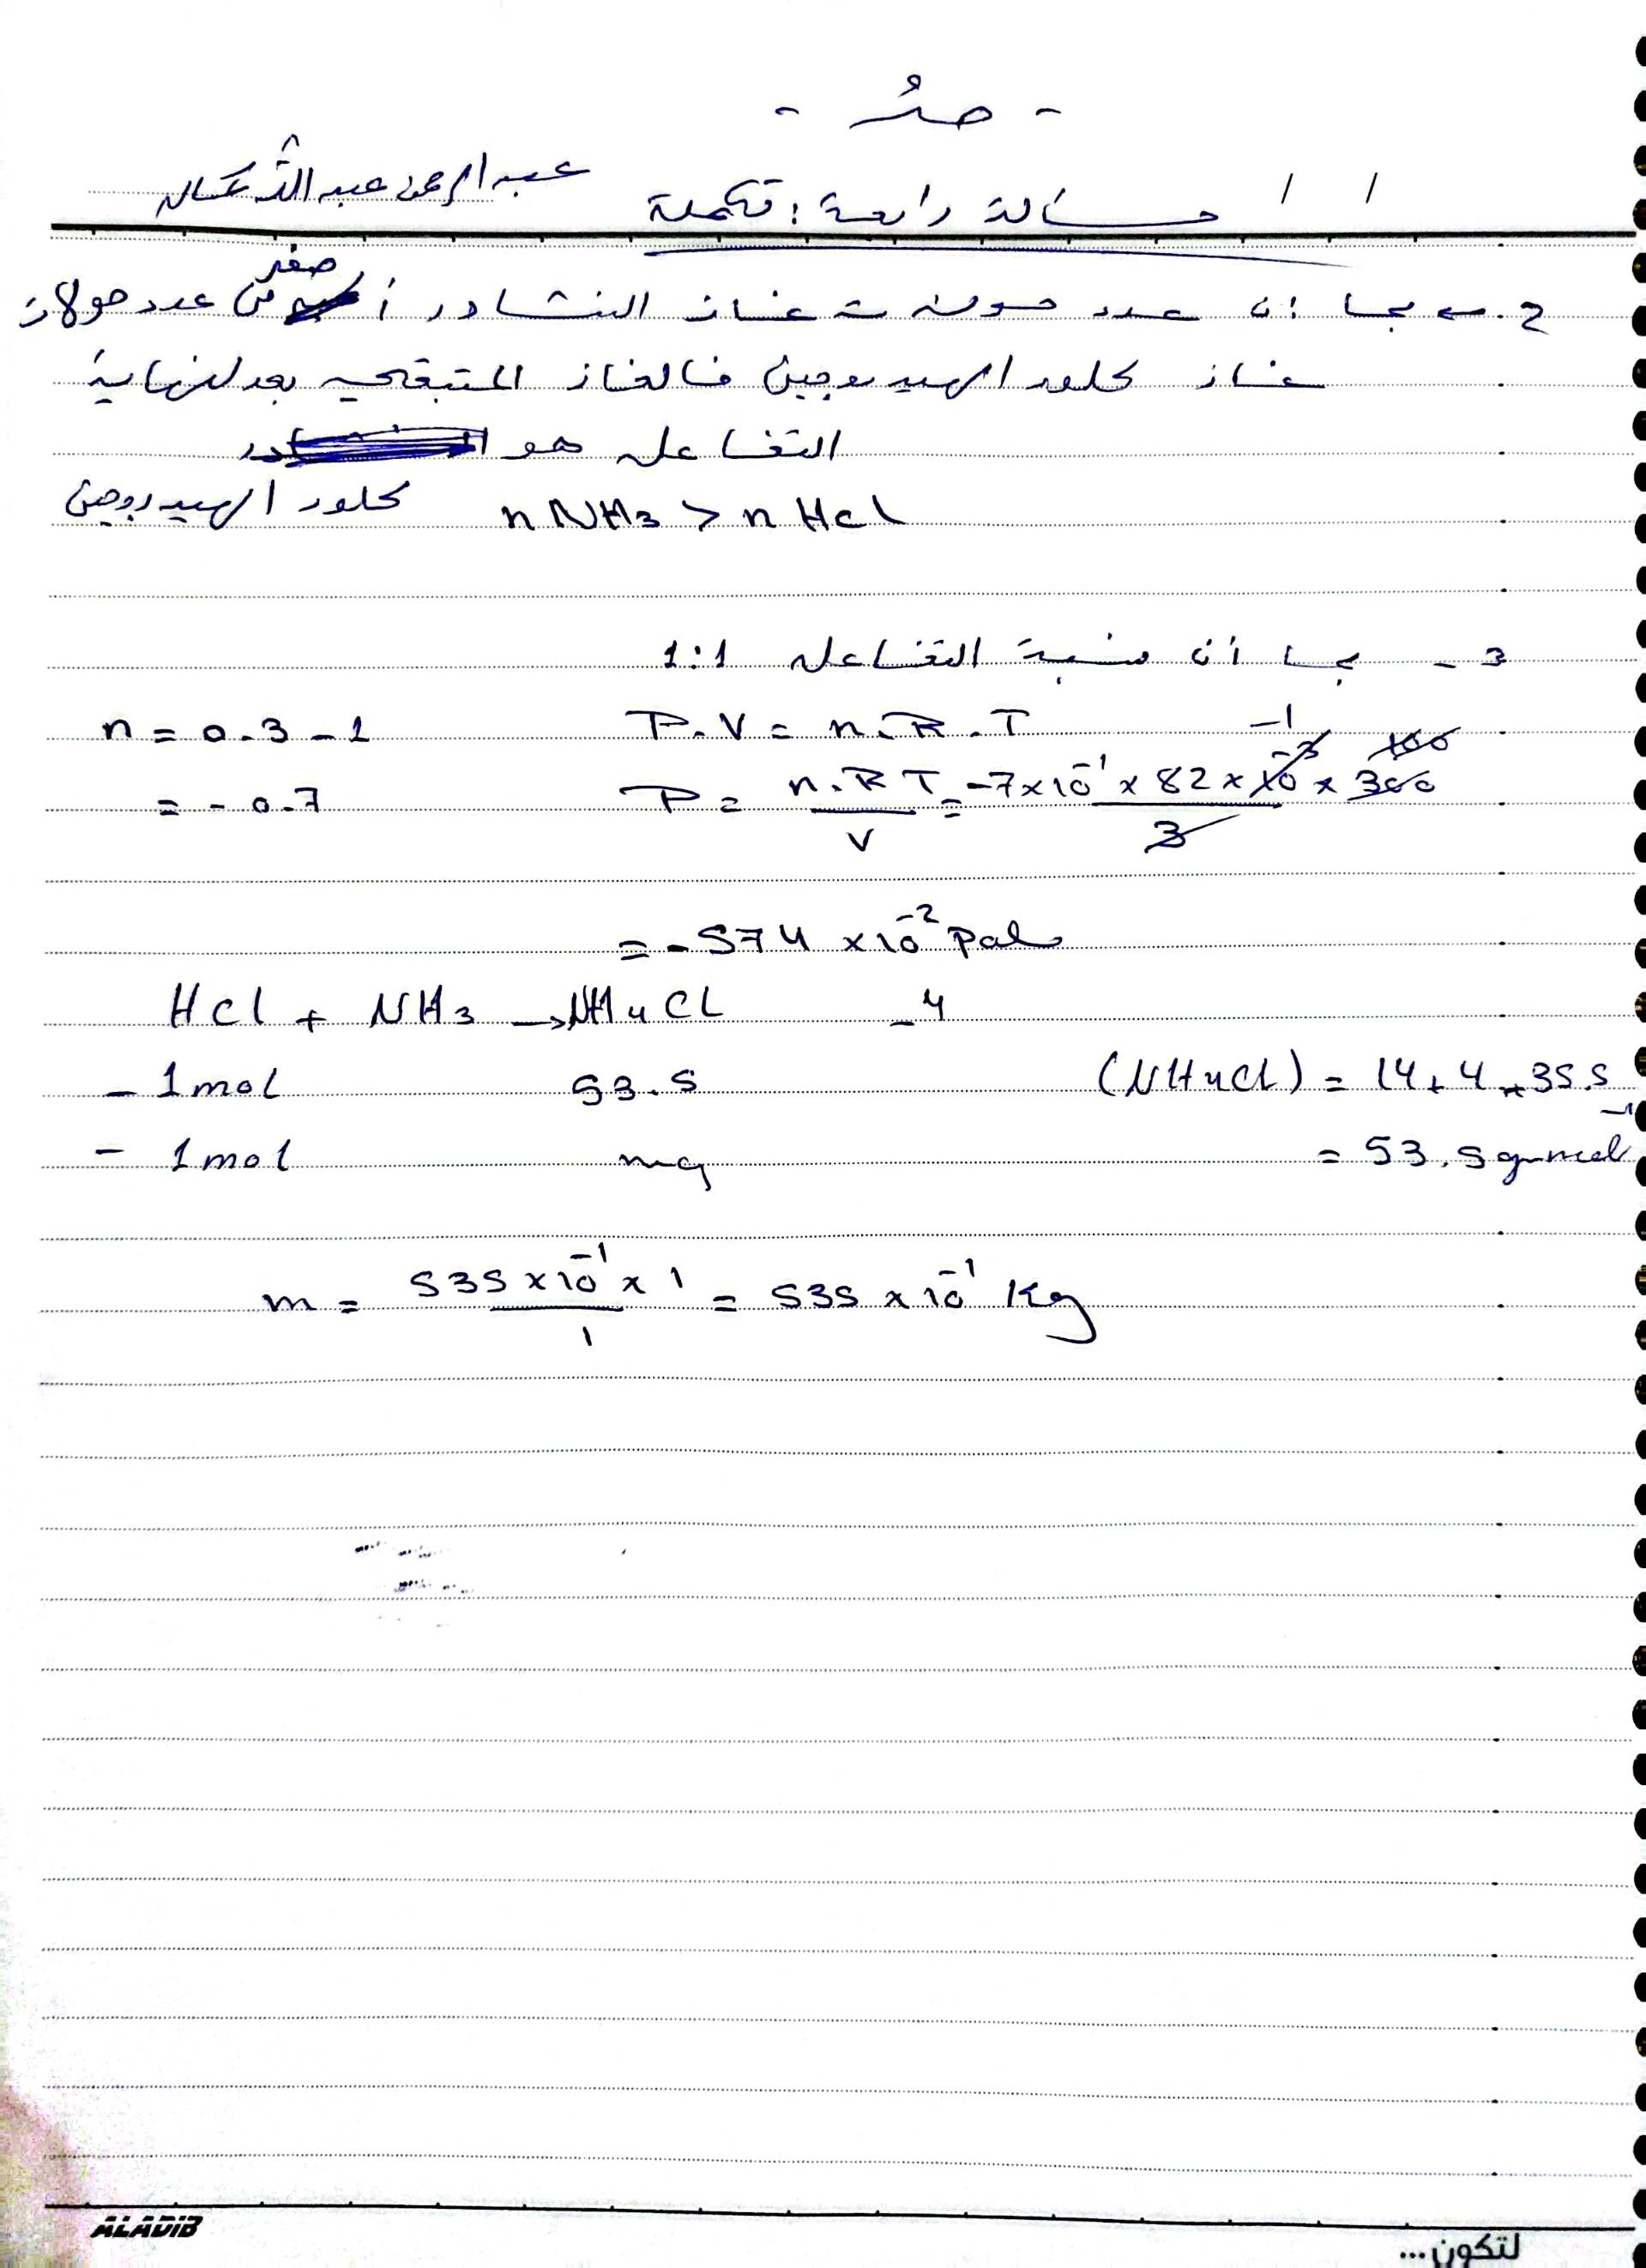 عبد الرحمن عبد الله
/ /
مسألة رابعة : تكملة
2 ← بما أن عدد مولات غاز النشادر أصغر من عدد مولات
غاز كلور الهيدروجين فالغاز المتبقي بعد لنهاية
التفاعل هو
كلور الهيدروجين
nNH3 > nHCl
3 - بما أن نسبة التفاعل 1:1
n = 0.3 - 1
P.V = n.R.T
= - 0.7
P = n.R T / V = -7×10^-1 × 82 × 10^-3 × 300 / 3
-1
100
= - 574 ×10^-2 pal
HCl + NH3 → NH4Cl
- 4
- 1mol 53.5
(NH4Cl) = 14+4+35.5
- 1mol mg
= 53.5 g.mol^-1
m = 535×10^-1 × 1 / 1 = 535 × 10^-1 Kg
ALADIB
لتكون...